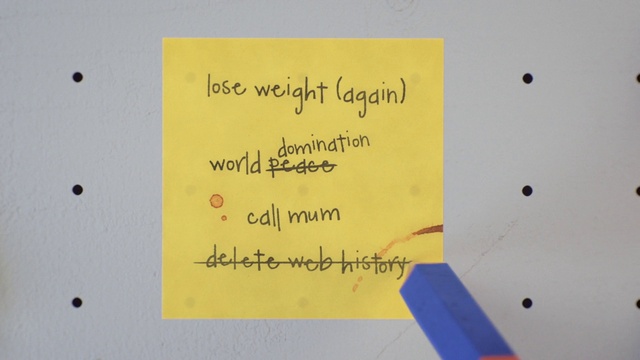 lose weight (again)
domination
world peace
call mum
delete web history